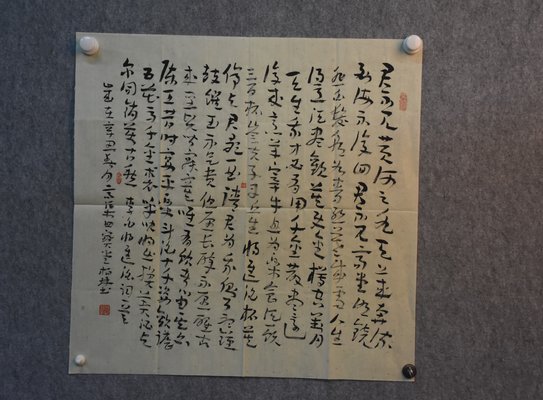 君不见黄河之水天上来奔流
到海不复回君不见高堂明镜
悲白发朝如青丝暮成雪人生
得意须尽欢莫使金樽空对月
天生我才必有用千金散尽还
复来烹羊宰牛且为乐会须一饮
三百杯岑夫子丹丘生将进酒杯莫
停与君歌一曲请君为我倾耳听
鼓钟玉不足贵但愿长醉不愿醒古
来圣贤皆寂寞唯有饮者留其名
陈王昔时宴平乐斗酒十千恣欢谑
五花马千金裘呼儿将出换美酒与
尔同销万古愁 李白将进酒词一首
岁在辛丑